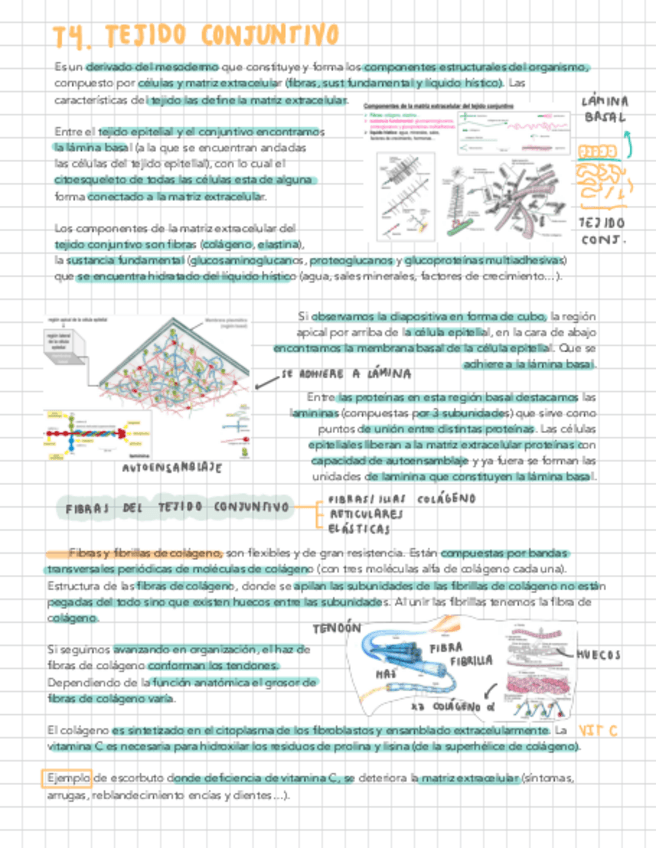 T4. TEJIDO CONJUNTIVO
Es un derivado del mesodermo que constituye y forma los componentes estructurales del organismo,
compuesto por células y matriz extracelular (fibras, sust fundamental y líquido hístico). Las
características del tejido las define la matriz extracelular.
Componentes de la matriz extracelular del tejido conjuntivo
LÁMINA
BASAL
Entre el tejido epitelial y el conjuntivo encontramos
la lámina basal (a la que se encuentran ancladas
las células del tejido epitelial), con lo cual el
citoesqueleto de todas las células esta de alguna
forma conectado a la matriz extracelular.
TEJIDO
CONJ.
Los componentes de la matriz extracelular del
tejido conjuntivo son fibras (colágeno, elastina),
la sustancia fundamental (glucosaminoglucanos, proteoglucanos y glucoproteínas multiadhesivas)
que se encuentra hidratado del líquido hístico (agua, sales minerales, factores de crecimiento...).
Si observamos la diapositiva en forma de cubo, la región
apical por arriba de la célula epitelial, en la cara de abajo
encontramos la membrana basal de la célula epitelial. Que se
adhiere a la lámina basal.
SE ADHIERE A LÁMINA
Entre las proteínas en esta región basal destacamos las
lamininas (compuestas por 3 subunidades) que sirve como
puntos de unión entre distintas proteínas. Las células
epiteliales liberan a la matriz extracelular proteínas con
capacidad de autoensamblaje y ya fuera se forman las
unidades de laminina que constituyen la lámina basal.
AUTOENSAMBLAJE
FIBRAS DEL TEJIDO CONJUNTIVO
FIBRAS/ILLAS COLÁGENO
RETICULARES
ELÁSTICAS
Fibras y fibrillas de colágeno, son flexibles y de gran resistencia. Están compuestas por bandas
transversales periódicas de moléculas de colágeno (con tres moléculas alfa de colágeno cada una).
Estructura de las fibras de colágeno, donde se apilan las subunidades de las fibrillas de colágeno no están
pegadas del todo sino que existen huecos entre las subunidades. Al unir las fibrillas tenemos la fibra de
colágeno.
TENDÓN
FIBRA
FIBRILLA
HAZ
HUECOS
x3 COLÁGENO α
Si seguimos avanzando en organización, el haz de
fibras de colágeno conforman los tendones.
Dependiendo de la función anatómica el grosor de
las fibras de colágeno varía.
El colágeno es sintetizado en el citoplasma de los fibroblastos y ensamblado extracelularmente. La
VIT C
vitamina C es necesaria para hidroxilar los residuos de prolina y lisina (de la superhélice de colágeno).
Ejemplo de escorbuto donde deficiencia de vitamina C, se deteriora la matriz extracelular (síntomas,
arrugas, reblandecimiento encías y dientes...).